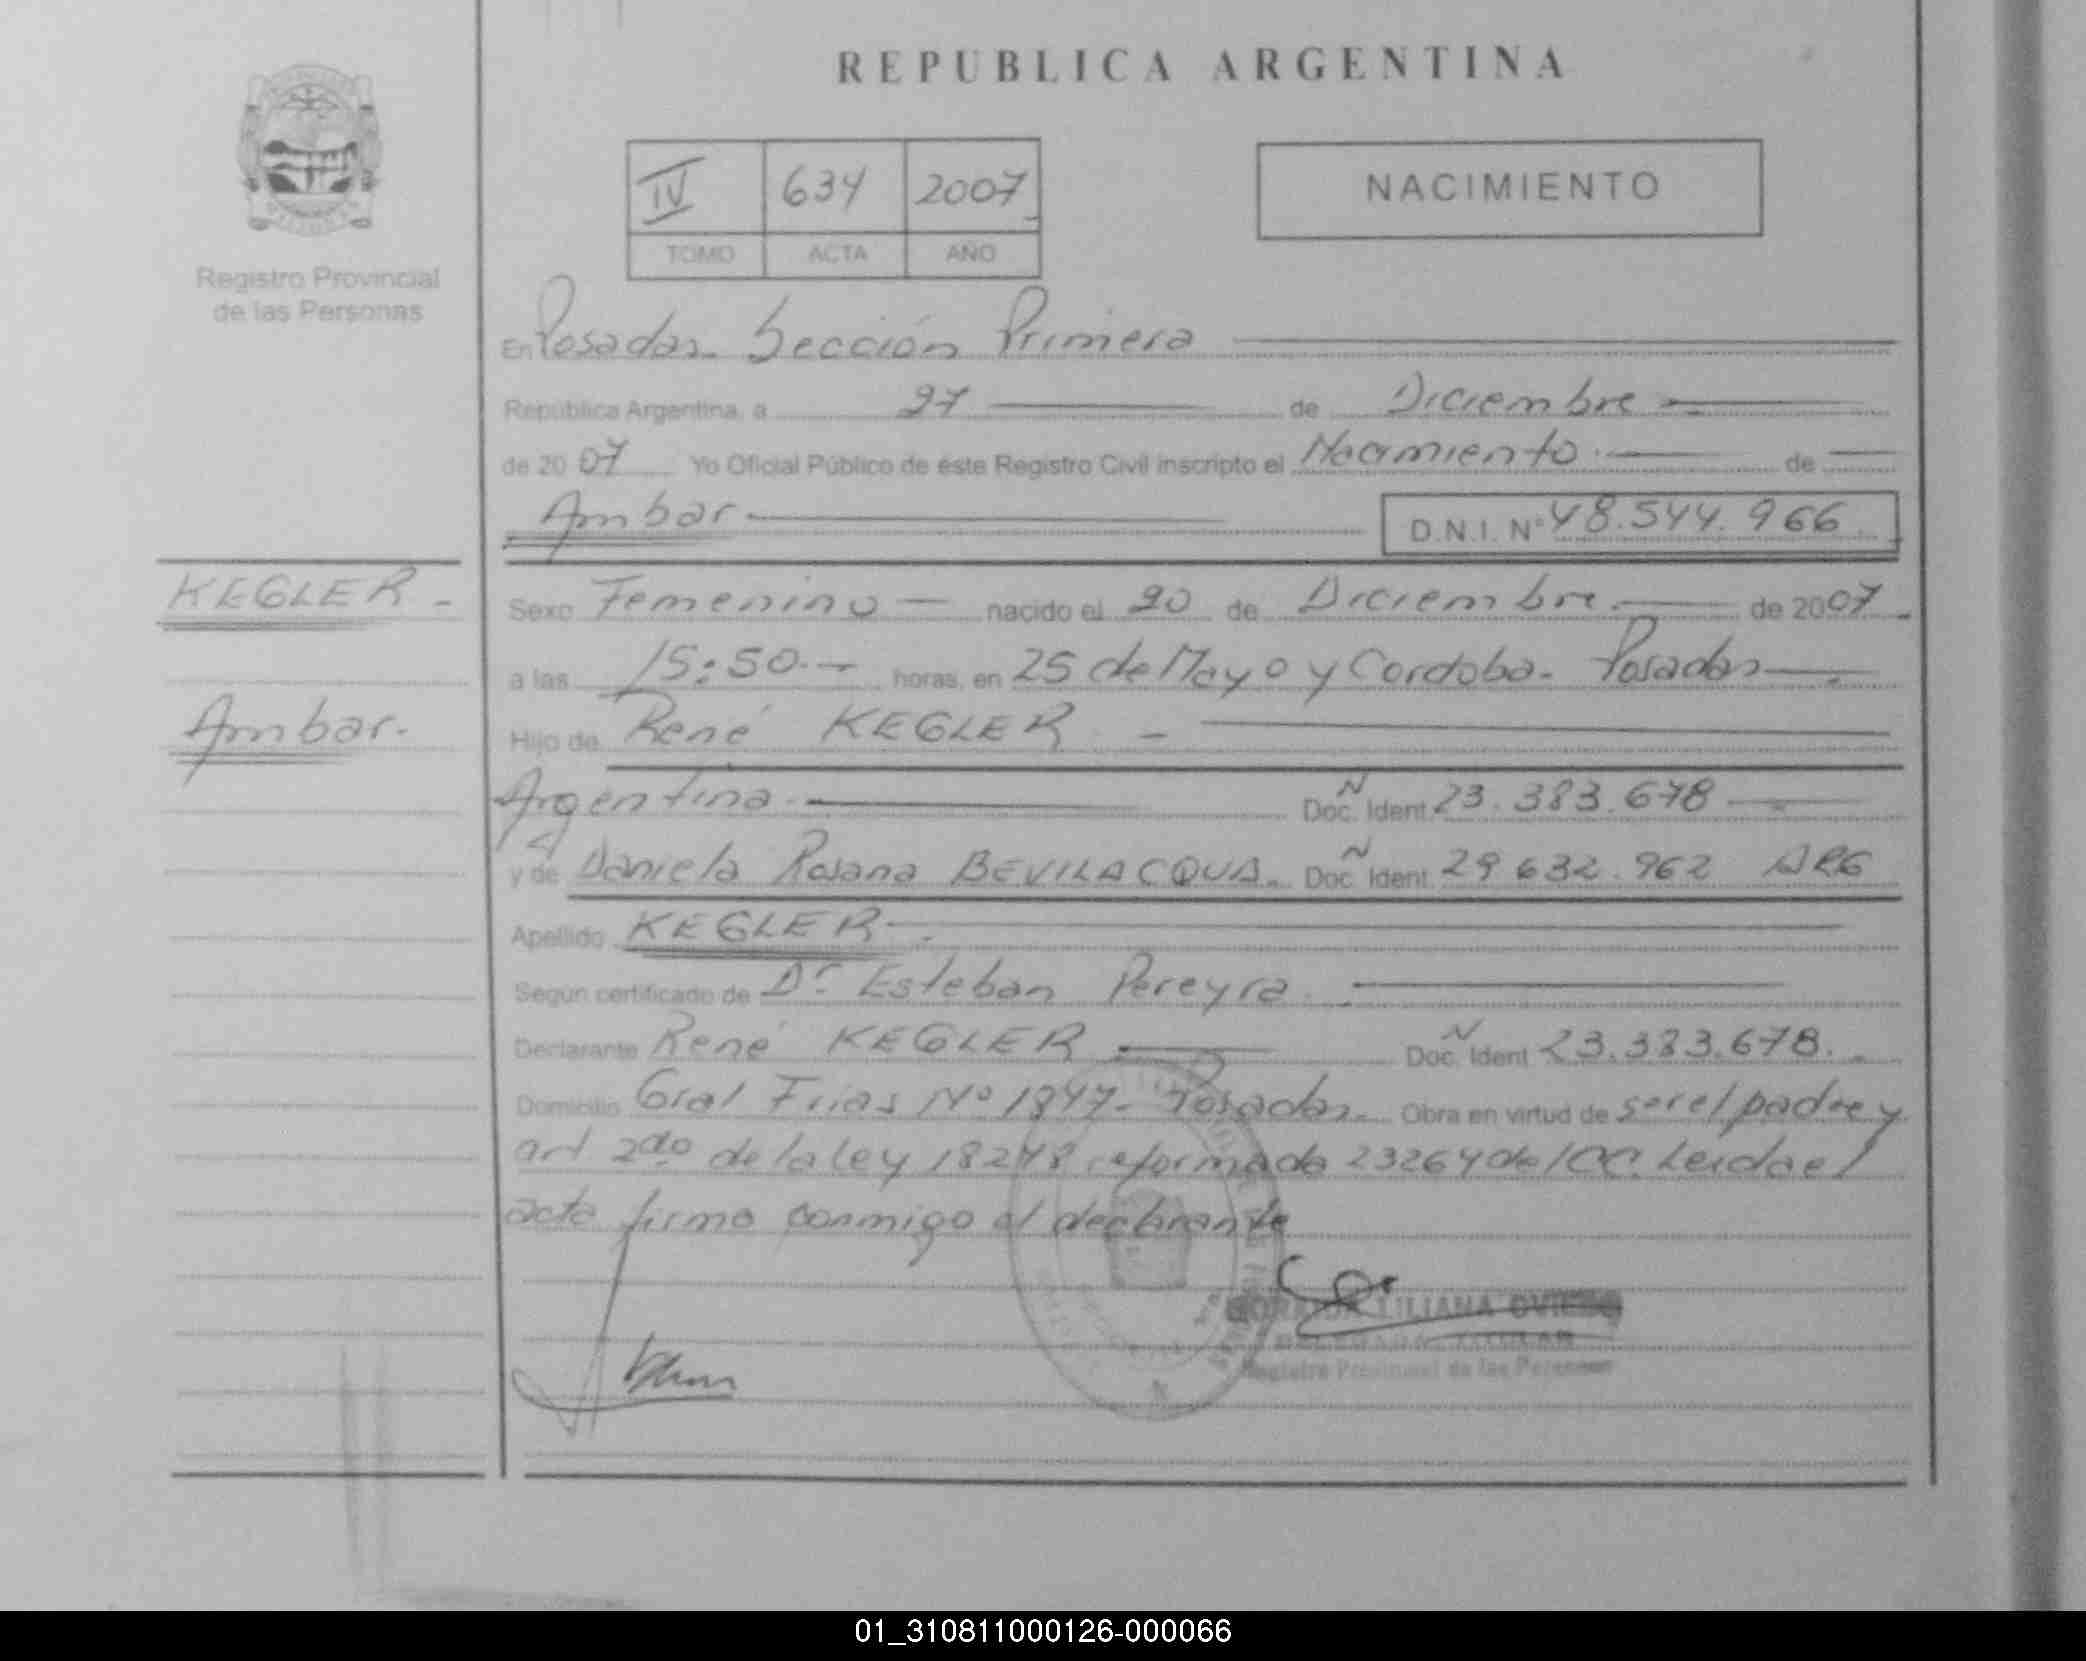 REPUBLICA ARGENTINA
IV 634 2007
TOMO ACTA AÑO
NACIMIENTO
Registro Provincial
de las Personas
En Posadas. Sección Primera
República Argentina, a 27 de Diciembre
de 2007 Yo Oficial Público de éste Registro Civil inscripto el Nacimiento de
Ambar D.N.I. Nº 48.544.966
KEGLER
Sexo Femenino nacido el 20 de Diciembre de 2007
a las 15:50 horas, en 25 de Mayo y Cordoba. Posadas
Ambar.
Hijo de René KEGLER
Argentina Doc. Ident. 23.383.678
y de Daniela Rosana BEVILACQUA. Doc. Ident. 29.632.962 ARG
Apellido KEGLER
Según certificado de Dr. Esteban Pereyra
Declarante René KEGLER Doc. Ident. 23.383.678.
Domicilio Gral Frias Nº 1847. Posadas. Obra en virtud de ser el padre y
art 2do de la ley 18248 reformada 23264 del CC. Leida el
acta firma conmigo el declarante
LILIANA OVIEDO
Registro Provincial de las Personas
01_310811000126-000066